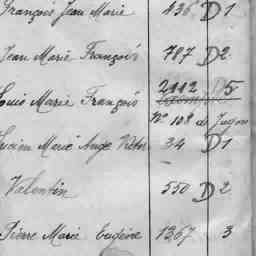 François Jean Marie 436 D 1
Jean Marie François 787 D 2
Louis Marie François 2112 D 5
N° 108 de Jugon
Lucien Marie Ange Victor 34 D 1
Valentin 550 D 2
Pierre Marie Eugène 1367 3